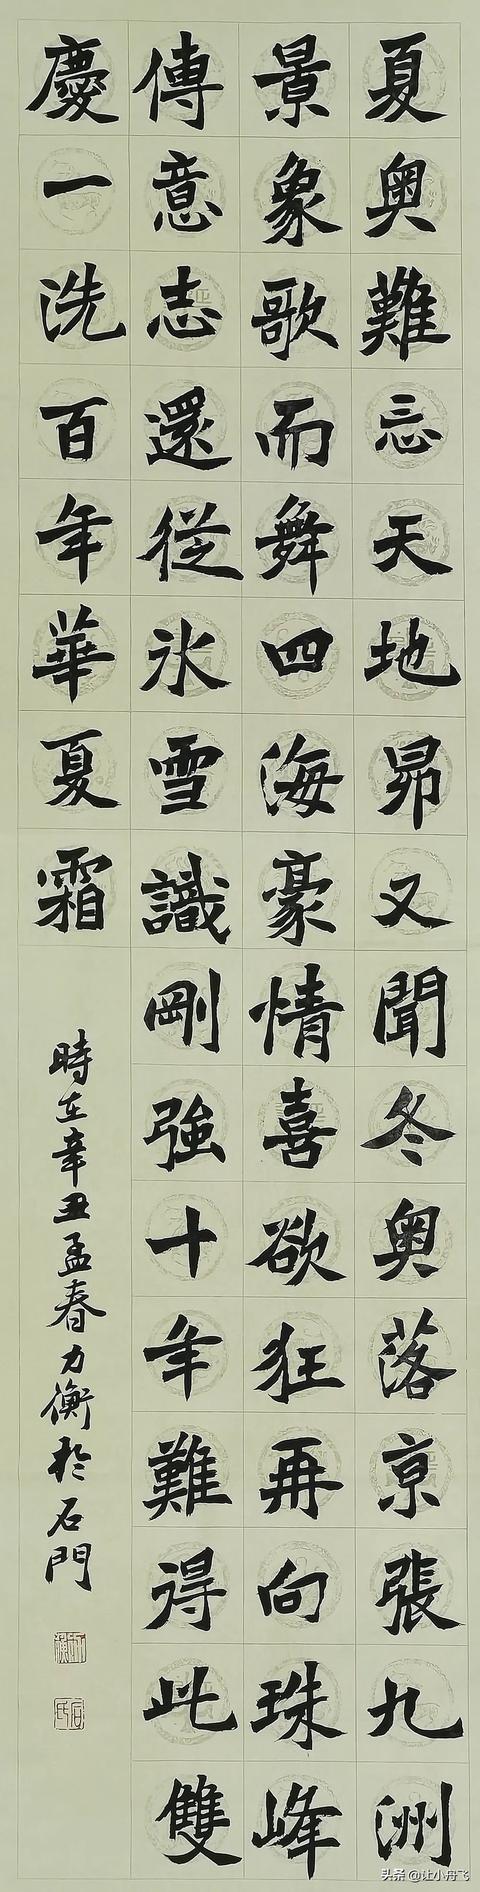 夏奧難忘天地昂又聞冬奧落京張九洲
景象歌而舞四海豪情喜欲狂再向珠峰
傳意志還從冰雪識剛強十年難得此雙
慶一洗百年華夏霜
時在辛丑孟春力衡於石門
头条@让小舟飞